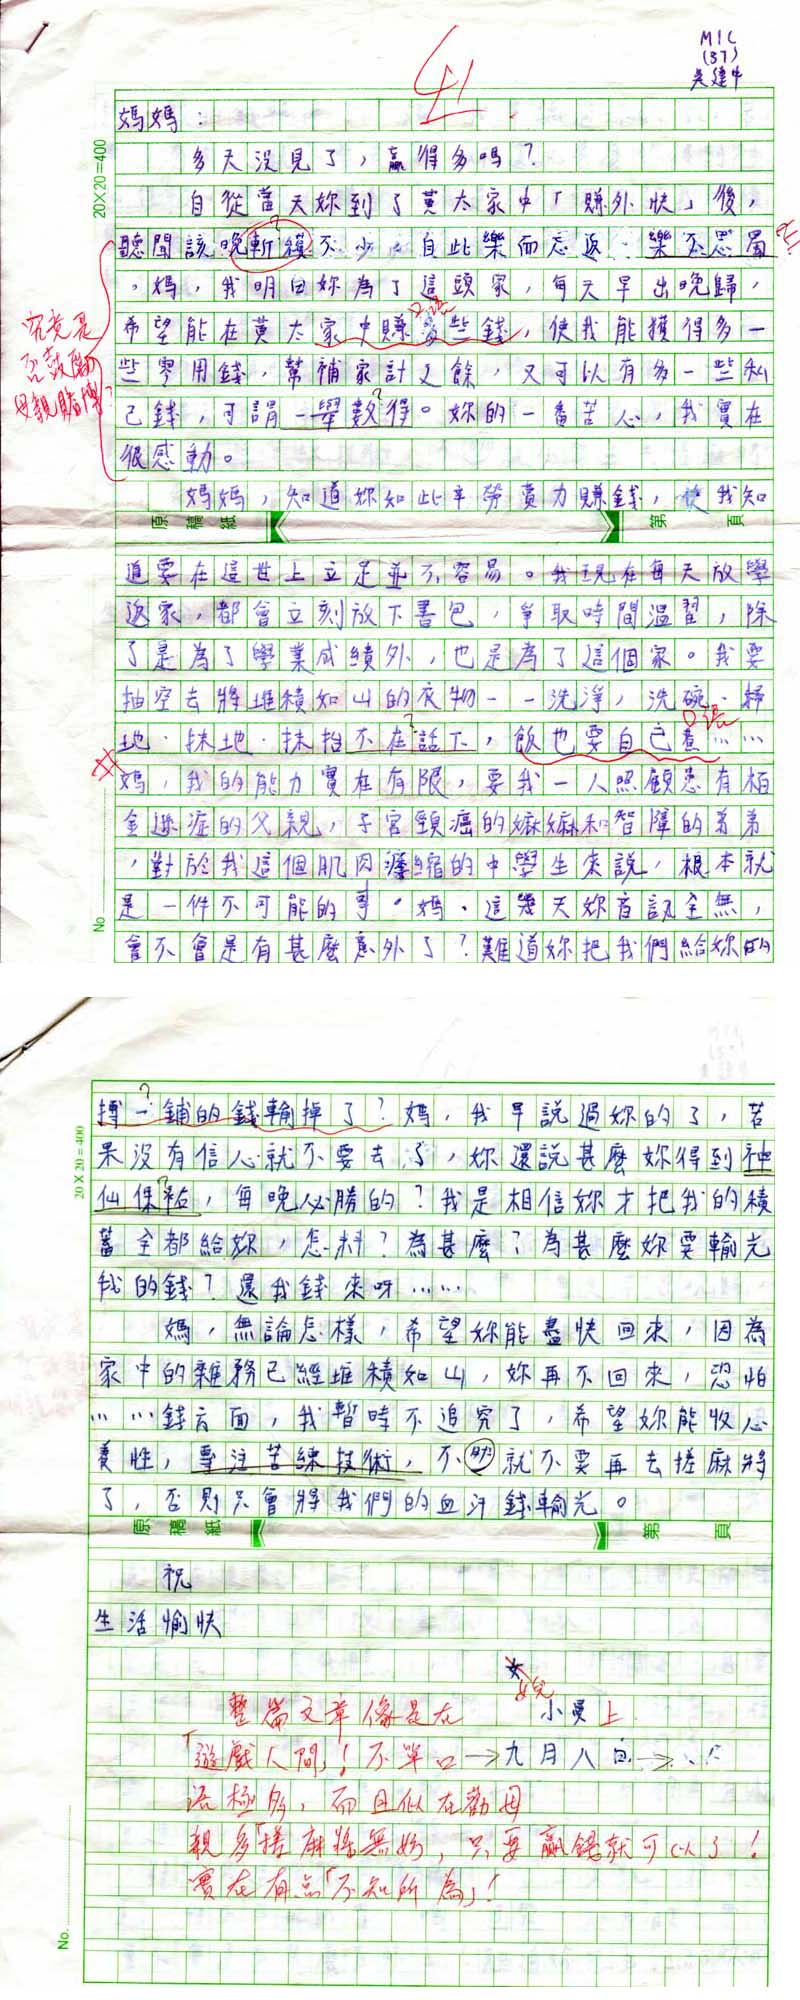 M1C
(37)
吳建中
41
20X20=400
媽媽：
多天沒見了，贏得多嗎？
自從當天妳到了黃太家中「賺外快」後，
聽聞該晚斬穫不少，自此樂而忘返，樂不思蜀
，媽，我明白妳為了這頭家，每天早出晚歸，
口語
希望能在黃太家中賺多些錢，使我能獲得多一
究竟是
否鼓勵
母親賭博？
些零用錢，幫補家計之餘，又可以有多一些私
己錢，可謂一舉數得。妳的一番苦心，我實在
很感動。
媽媽，知道妳如此辛勞賣力賺錢，使我知
原稿紙 第 頁
道要在這世上立足並不容易。我現在每天放學
返家，都會立刻放下書包，爭取時間溫習，除
了是為了學業成績外，也是為了這個家。我要
抽空去將堆積如山的衣物一一洗淨，洗碗、掃
口語
地、抹地、抹抬不在話下，飯也要自己煮……
媽，我的能力實在有限，要我一人照顧患有栢
金遜症的父親，子宮頸癌的嫲嫲和智障的弟弟
，對於我這個肌肉萎縮的中學生來說，根本就
是一件不可能的事。媽、這幾天妳音訊全無，
No
會不會是有甚麼意外了？難道妳把我們給妳的
20X20=400
搏一鋪的錢輸掉了？媽，我早說過妳的了，若
果沒有信心就不要去了，妳還說甚麼妳得到神
仙保祐，每晚必勝的？我是相信妳才把我的積
蓄全都給妳，怎料？為甚麼？為甚麼妳要輸光
我的錢？還我錢來呀……
媽，無論怎樣，希望妳能盡快回來，因為
家中的雜務已經堆積如山，妳再不回來，恐怕
……錢方面，我暫時不追究了，希望妳能收心
養性，專注苦練技術，不然就不要再去搓麻將
了，否則只會將我們的血汗錢輸光。
原稿紙 第 頁
祝
生活愉快
女兒
小曼上
九月八日
整篇文章像是在
「遊戲人間」！不單口
語極多，而且似在勸母
親多「搓麻將無妨，只要贏錢就可以了！
實在有點「不知所為」！
No.